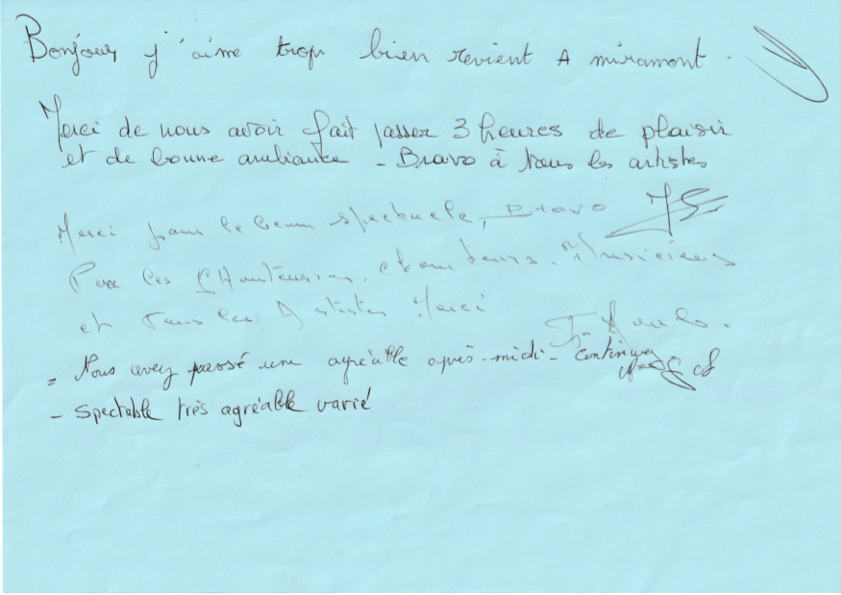 Bonjour, j'aime trop bien revient A miramont.
Merci de nous avoir fait passer 3 heures de plaisir
et de bonne ambiance - Bravo à tous les artistes
Merci pour le beau spectacle, Bravo
Pour les CHanteuses, chanteurs. Musiciens
et Tous les Artistes Merci
= Nous avez passé une agréable après-midi - continuez
- Spectable très agréable varié